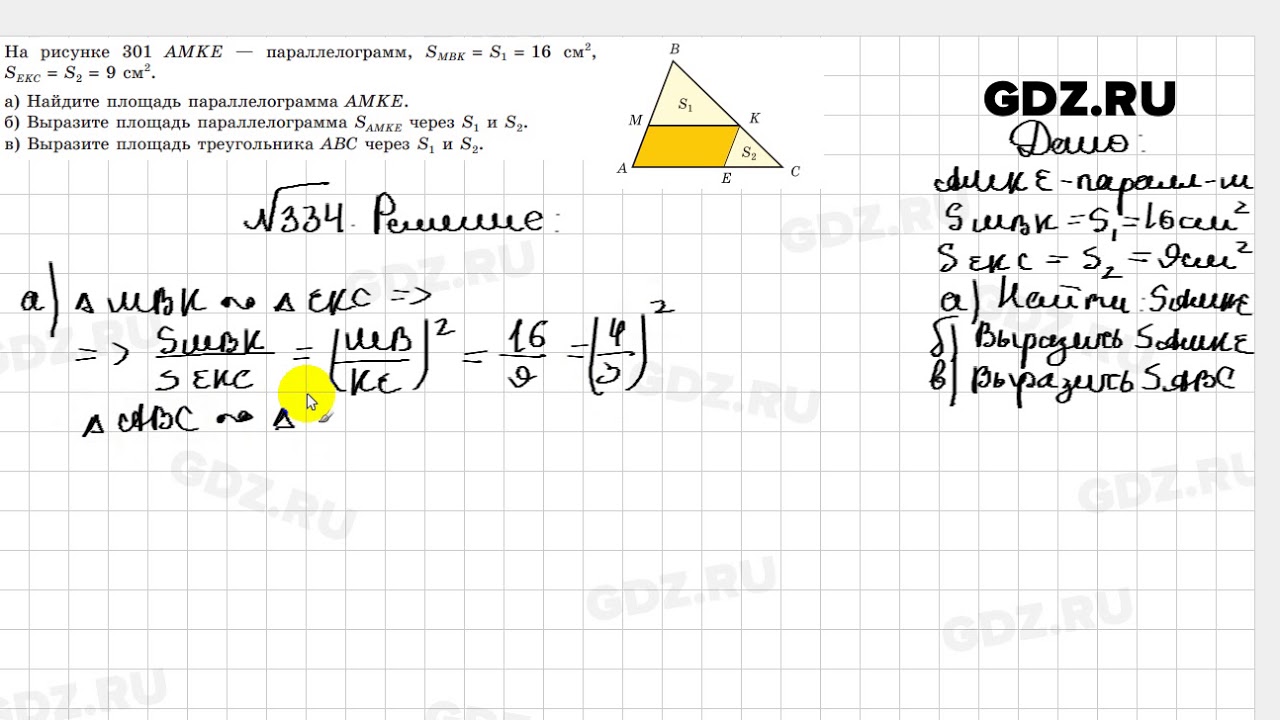 На рисунке 301 AMKE — параллелограмм, S_MBK = S₁ = 16 см²,
S_EKC = S₂ = 9 см².
а) Найдите площадь параллелограмма AMKE.
б) Выразите площадь параллелограмма S_AMKE через S₁ и S₂.
в) Выразите площадь треугольника ABC через S₁ и S₂.
B
S₁
M
K
S₂
A
E
C
GDZ.RU
Дано:
AMKE - паралл-м
S MBK = S₁ = 16 см²
S EKC = S₂ = 9 см²
а) Найти: SAMKE
б) Выразить SAMKE
в) Выразить SABC
№334. Решение:
а) Δ MBK ~ Δ EKC =>
=> SMBK / SEKC = (MB / KE)² = 16 / 9 = (4 / 3)²
Δ ABC ~ Δ
GDZ.RU
GDZ.RU
GDZ.RU
GDZ.RU
GDZ.RU
GDZ.RU
GDZ.RU
GDZ.RU
GDZ.RU
GDZ.RU